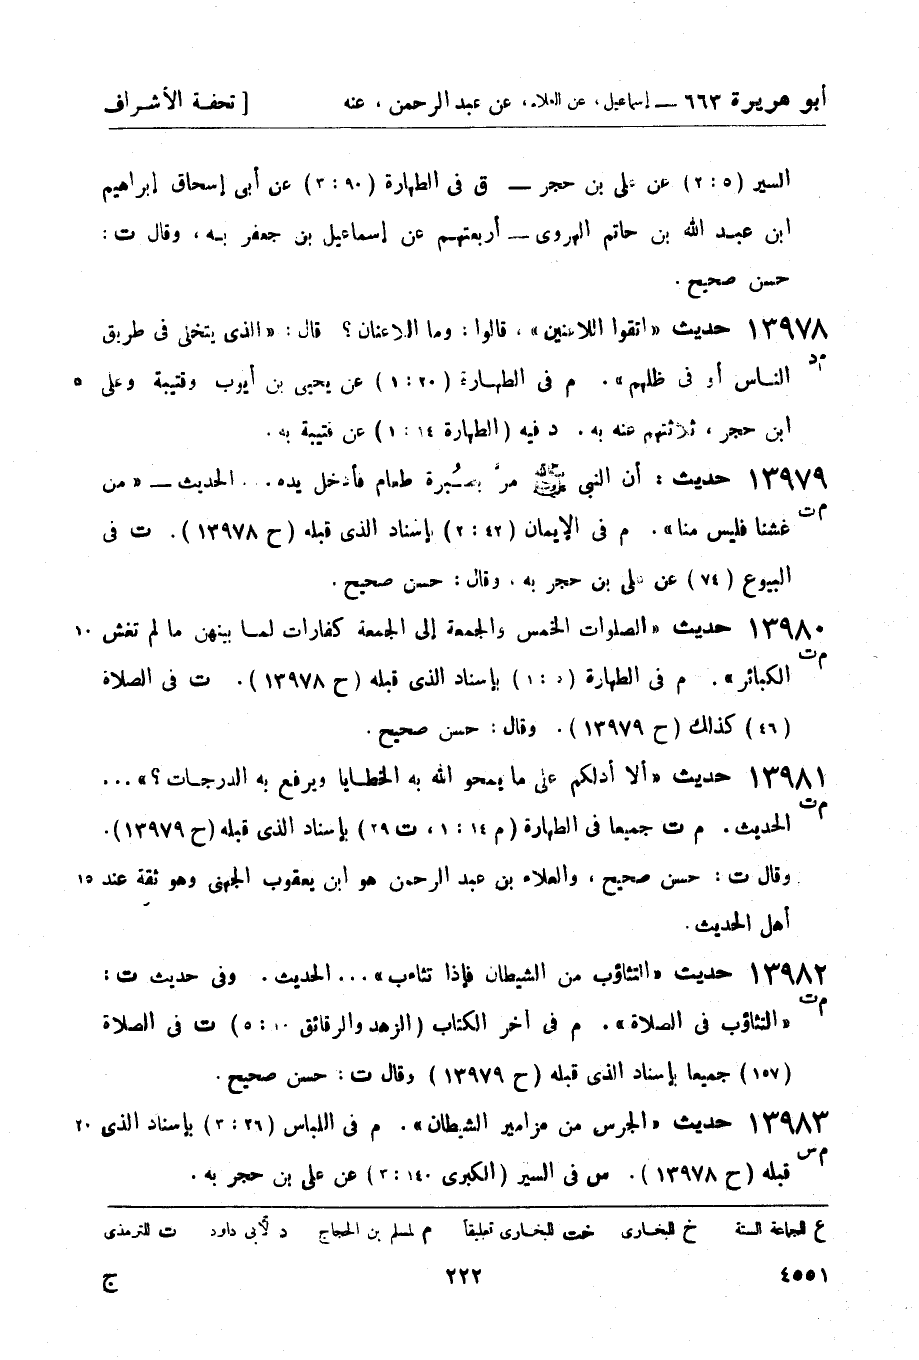 أبو هريرة ٦٦٣ — إسماعيل، عن العلاء، عن عبد الرحمن، عنه [ تحفة الأشراف
السير (٢:٥) عن على بن حجر — ق فى الطهارة (٣:٩٠) عن أبى إسحاق إبراهيم
ابن عبد الله بن حاتم الهروى — أربعتهم عن إسماعيل بن جعفر به، وقال ت:
حسن صحيح.
١٣٩٧٨ حديث «اتقوا اللاعنين»، قالوا: وما اللاعنان؟ قال: «الذى يتخلى فى طريق
م د
الناس أو فى ظلهم». م فى الطهارة (١:٢٠) عن يحيى بن أيوب وقتيبة وعلى ٥
ابن حجر، ثلاثتهم عنه به. د فيه (الطهارة ١:١٤) عن قتيبة به.
١٣٩٧٩ حديث: أن النبى ﷺ مرَّ بصُبرة طعام فأدخل يده... الحديث — «من
م ت
غشنا فليس منا». م فى الإيمان (٢:٤٢) بإسناد الذى قبله (ح ١٣٩٧٨). ت فى
البيوع (٧٤) عن على بن حجر به، وقال: حسن صحيح.
١٣٩٨٠ حديث «الصلوات الخمس والجمعة إلى الجمعة كفارات لما بينهن ما لم تغش ١٠
م ت
الكبائر». م فى الطهارة (١:٥) بإسناد الذى قبله (ح ١٣٩٧٨). ت فى الصلاة
(٤٦) كذلك (ح ١٣٩٧٩). وقال: حسن صحيح.
١٣٩٨١ حديث «ألا أدلكم على ما يمحو الله به الخطايا ويرفع به الدرجات؟»...
م ت
الحديث. م ت جميعا فى الطهارة (م ١:١٤، ت ٢٩) بإسناد الذى قبله (ح ١٣٩٧٩).
وقال ت: حسن صحيح، والعلاء بن عبد الرحمن هو ابن يعقوب الجهنى وهو ثقة عند ١٥
أهل الحديث.
١٣٩٨٢ حديث «التثاؤب من الشيطان فإذا تثاءب»... الحديث. وفى حديث ت:
م ت
«التثاؤب فى الصلاة». م فى أخر الكتاب (الزهد والرقائق ٥:١٠) ت فى الصلاة
(١٥٧) جميعا بإسناد الذى قبله (ح ١٣٩٧٩) وقال ت: حسن صحيح.
١٣٩٨٣ حديث «الجرس من مزامير الشيطان». م فى اللباس (٣:٢٦) بإسناد الذى ٢٠
م س
قبله (ح ١٣٩٧٨). س فى السير (الكبرى ٣:١٤٠) عن على بن حجر به.
ع للجماعة الستة خ للبخارى خت للبخارى تعليقاً م لمسلم بن الحجاج د لأبى داود ت للترمذى
٤٥٥١ ٢٢٢ ج